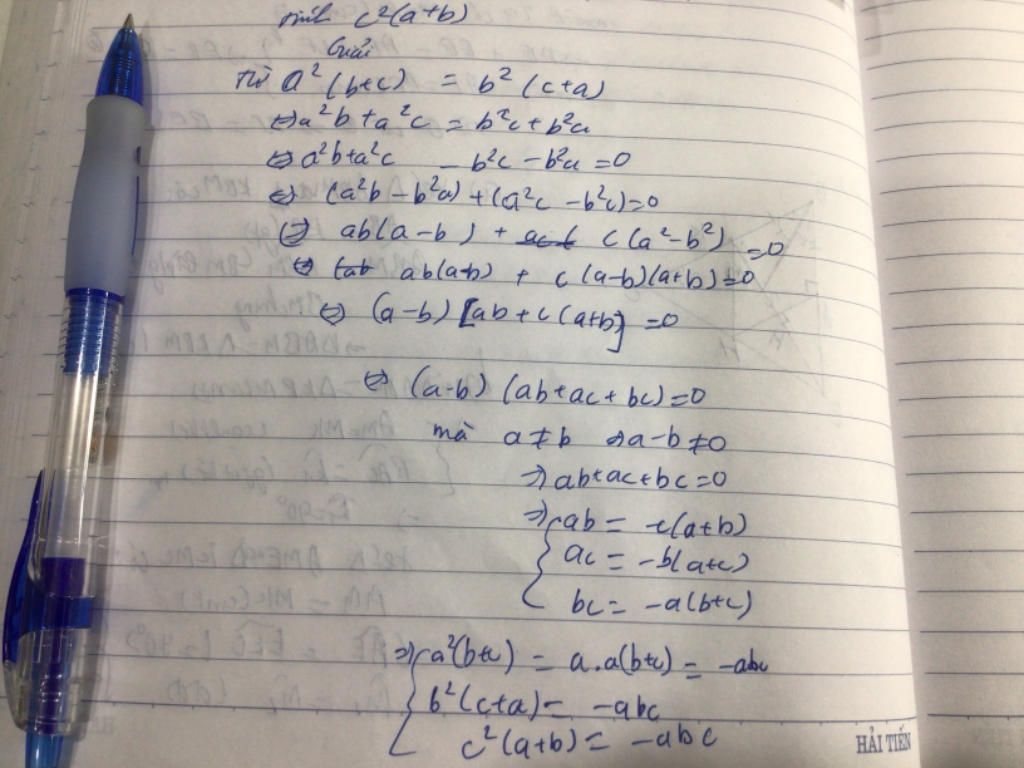 tính c²(a+b)
Giải
Từ a²(b+c) = b²(c+a)
⇔ a²b + a²c = b²c + b²a
⇔ a²b + a²c - b²c - b²a = 0
⇔ (a²b - b²a) + (a²c - b²c) = 0
⇔ ab(a-b) + c(a²-b²) = 0
⇔ ab(a-b) + c(a-b)(a+b) = 0
⇔ (a-b) [ab + c(a+b)] = 0
⇔ (a-b) (ab+ac+bc) = 0
mà a ≠ b ⇒ a-b ≠ 0
⇒ ab+ac+bc = 0
⇒ { ab = -c(a+b)
ac = -b(a+c)
bc = -a(b+c)
⇒ { a²(b+c) = a.a(b+c) = -abc
b²(c+a) = -abc
c²(a+b) = -abc
HẢI TIẾN